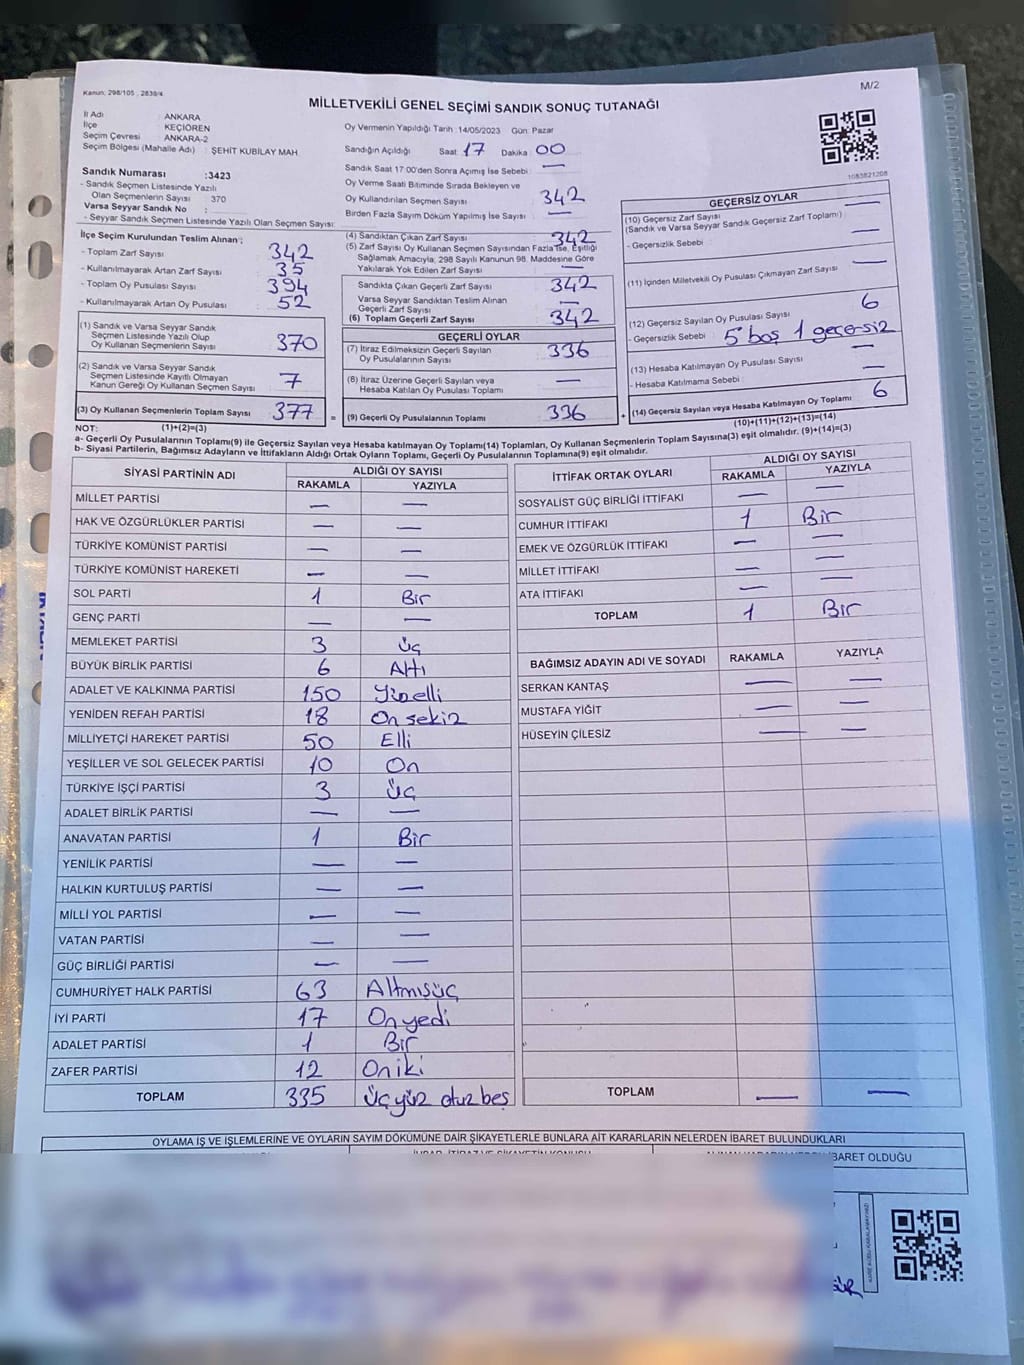 Kanun: 298/105 , 2839/4
M/2
MİLLETVEKİLİ GENEL SEÇİMİ SANDIK SONUÇ TUTANAĞI
İl Adı : ANKARA
İlçe KEÇİÖREN
Seçim Çevresi : ANKARA-2
Seçim Bölgesi (Mahalle Adı) : ŞEHİT KUBİLAY MAH.
Sandık Numarası :3423
- Sandık Seçmen Listesinde Yazılı
Olan Seçmenlerin Sayısı : 370
Varsa Seyyar Sandık No :
- Seyyar Sandık Seçmen Listesinde Yazılı Olan Seçmen Sayısı:
Oy Vermenin Yapıldığı Tarih :14/05/2023 Gün: Pazar
Sandığın Açıldığı Saat: 17 Dakika 00
Sandık Saat 17.00'den Sonra Açımış İse Sebebi : —
Oy Verme Saati Bitiminde Sırada Bekleyen ve
Oy Kullandırılan Seçmen Sayısı 342
Birden Fazla Sayım Döküm Yapılmış İse Sayısı —
1083821208
İlçe Seçim Kurulundan Teslim Alınan ;
- Toplam Zarf Sayısı 342
- Kullanılmayarak Artan Zarf Sayısı 35
- Toplam Oy Pusulası Sayısı 394
- Kullanılmayarak Artan Oy Pusulası 52
(1) Sandık ve Varsa Seyyar Sandık
Seçmen Listesinde Yazılı Olup
Oy Kullanan Seçmenlerin Sayısı 370
(2) Sandık ve Varsa Seyyar Sandık
Seçmen Listesinde Kayıtlı Olmayan
Kanun Gereği Oy Kullanan Seçmen Sayısı 7
(3) Oy Kullanan Seçmenlerin Toplam Sayısı 377 =
(4) Sandıktan Çıkan Zarf Sayısı 342
(5) Zarf Sayısı Oy Kullanan Seçmen Sayısından Fazla İse, Eşitliği
Sağlamak Amacıyla, 298 Sayılı Kanunun 98. Maddesine Göre
Yakılarak Yok Edilen Zarf Sayısı —
Sandıkta Çıkan Geçerli Zarf Sayısı 342
Varsa Seyyar Sandıktan Teslim Alınan
Geçerli Zarf Sayısı —
(6) Toplam Geçerli Zarf Sayısı 342
GEÇERLİ OYLAR
(7) İtiraz Edilmeksizin Geçerli Sayılan
Oy Pusulalarının Sayısı 336
(8) İtiraz Üzerine Geçerli Sayılan veya
Hesaba Katılan Oy Pusulası Toplamı —
(9) Geçerli Oy Pusulalarının Toplamı 336 +
GEÇERSİZ OYLAR —
(10) Geçersiz Zarf Sayısı
(Sandık ve Varsa Seyyar Sandık Geçersiz Zarf Toplamı) —
- Geçersizlik Sebebi :
(11) İçinden Milletvekili Oy Pusulası Çıkmayan Zarf Sayısı —
(12) Geçersiz Sayılan Oy Pusulası Sayısı 6
- Geçersizlik Sebebi : 5 boş 1 geçersiz
(13) Hesaba Katılmayan Oy Pusulası Sayısı —
- Hesaba Katılmama Sebebi : —
(14) Geçersiz Sayılan veya Hesaba Katılmayan Oy Toplamı 6
NOT: (1)+(2)=(3)
(10)+(11)+(12)+(13)=(14)
a- Geçerli Oy Pusulalarının Toplamı(9) ile Geçersiz Sayılan veya Hesaba katılmayan Oy Toplamı(14) Toplamları, Oy Kullanan Seçmenlerin Toplam Sayısına(3) eşit olmalıdır. (9)+(14)=(3)
b- Siyasi Partilerin, Bağımsız Adayların ve İttifakların Aldığı Ortak Oyların Toplamı, Geçerli Oy Pusulalarının Toplamına(9) eşit olmalıdır.
SİYASİ PARTİNİN ADI ALDIĞI OY SAYISI
RAKAMLA YAZIYLA
MİLLET PARTİSİ — —
HAK VE ÖZGÜRLÜKLER PARTİSİ — —
TÜRKİYE KOMÜNİST PARTİSİ — —
TÜRKİYE KOMÜNİST HAREKETİ — —
SOL PARTİ 1 Bir
GENÇ PARTİ — —
MEMLEKET PARTİSİ 3 Üç
BÜYÜK BİRLİK PARTİSİ 6 Altı
ADALET VE KALKINMA PARTİSİ 150 Yüzelli
YENİDEN REFAH PARTİSİ 18 On sekiz
MİLLİYETÇİ HAREKET PARTİSİ 50 Elli
YEŞİLLER VE SOL GELECEK PARTİSİ 10 On
TÜRKİYE İŞÇİ PARTİSİ 3 Üç
ADALET BİRLİK PARTİSİ — —
ANAVATAN PARTİSİ 1 Bir
YENİLİK PARTİSİ — —
HALKIN KURTULUŞ PARTİSİ — —
MİLLİ YOL PARTİSİ — —
VATAN PARTİSİ — —
GÜÇ BİRLİĞİ PARTİSİ — —
CUMHURİYET HALK PARTİSİ 63 Altmışüç
İYİ PARTİ 17 Onyedi
ADALET PARTİSİ 1 Bir
ZAFER PARTİSİ 12 Oniki
TOPLAM 335 Üçyüz otuzbeş
İTTİFAK ORTAK OYLARI ALDIĞI OY SAYISI
RAKAMLA YAZIYLA
SOSYALİST GÜÇ BİRLİĞİ İTTİFAKI — —
CUMHUR İTTİFAKI 1 Bir
EMEK VE ÖZGÜRLÜK İTTİFAKI — —
MİLLET İTTİFAKI — —
ATA İTTİFAKI — —
TOPLAM 1 Bir
BAĞIMSIZ ADAYIN ADI VE SOYADI RAKAMLA YAZIYLA
SERKAN KANTAŞ — —
MUSTAFA YİĞİT — —
HÜSEYİN ÇİLESİZ — —
TOPLAM — —
OYLAMA İŞ VE İŞLEMLERİNE VE OYLARIN SAYIM DÖKÜMÜNE DAİR ŞİKAYETLERLE BUNLARA AİT KARARLARIN NELERDEN İBARET BULUNDUKLARI
İBARET OLDUĞU